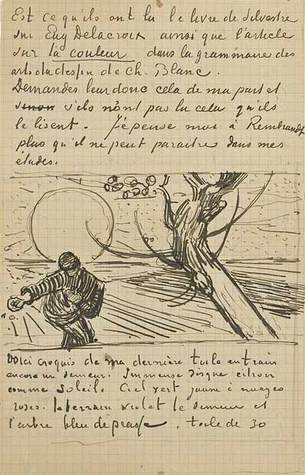 Est ce qu'ils ont lu le livre de Silvestre
sur Eug Delacroix ainsi que l'article
sur la couleur dans la grammaire des
arts du dessin de Ch. Blanc.
Demandes leur donc cela de ma part et
sinon s'ils n'ont pas lu cela qu'ils
le lisent. J'pense moi à Rembrandt
plus qu'il ne peut paraitre dans mes
études.
Voici croquis de ma dernière toile en train
encore un semeur. Immense disque citron
comme soleil. Ciel vert jaune à nuages
roses. le terrain violet le semeur et
l'arbre bleu de prusse. toile de 30